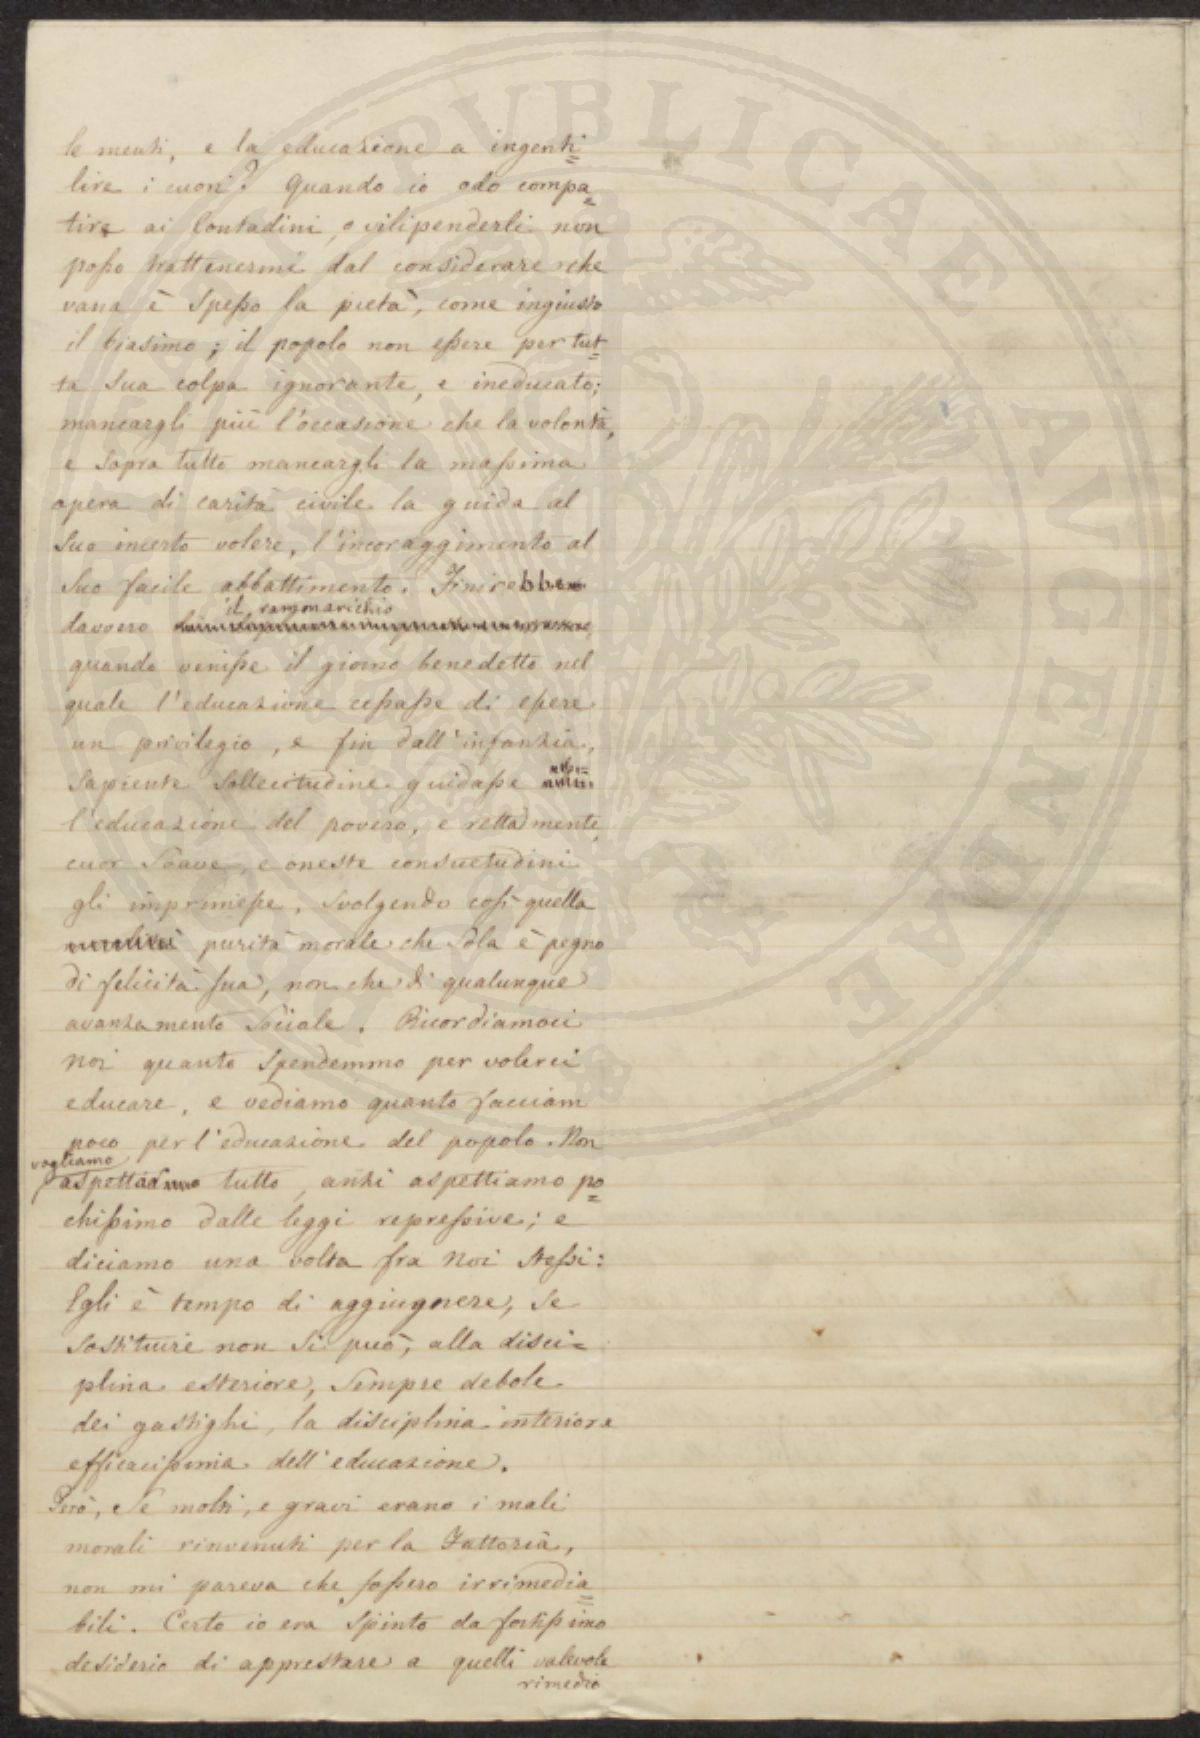 le menti, e la educazione a ingenti=
lire i cuori? Quando io odo compa=
tire ai Contadini, o vilipenderli non
posso trattenermi dal considerare che
vana è spesso la pietà, come ingiusto
il biasimo; il popolo non essere per tut=
ta sua colpa ignorante, e ineducato;
mancargli più l'occasione che la volontà,
e sopra tutto mancargli la massima
opera di carità civile la guida al
suo incerto volere, l'incoraggimento al
suo facile abbattimento. Finirebbe
il rammarichio
davvero
quando venisse il giorno benedetto nel
quale l'educazione cessasse di essere
un privilegio, e fin dall'infanzia,
sapiente sollecitudine guidasse
l'educazione del povero, e retta mente,
cuor soave, e oneste consuetudini
gli imprimesse, svolgendo così quella
purità morale che sola è pegno
di felicità sua, non che di qualunque
avanzamento sociale. Ricordiamoci
noi quanto spendemmo per volerci
educare, e vediamo quanto facciam
poco per l'educazione del popolo. Non
vogliamo
aspettar tutto, anzi aspettiamo po=
chissimo dalle leggi repressive; e
diciamo una volta fra noi stessi:
Egli è tempo di aggiugnere, se
sostituire non si può, alla disci=
plina esteriore, sempre debole
dei gastighi, la disciplina interiore
efficacissima dell'educazione.
Però, se molti, e gravi erano i mali
morali rinvenuti per la Fattoria,
non mi pareva che fossero irrimedia=
bili. Certo io era spinto da fortissimo
desiderio di apprestare a quelli valevole
rimedio
PUBLICAE AUGENDAE